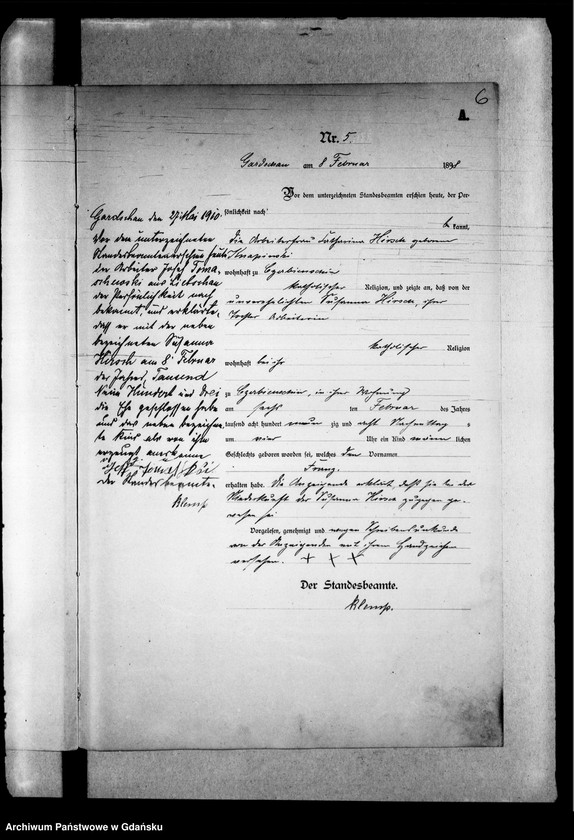 6
A.
Nr. 5.
Gardschau am 8 Februar 1898
Vor dem unterzeichneten Standesbeamten erschien heute, der Per-
sönlichkeit nach
be kannt,
die Arbeiterfrau Catharina Hirsch geborene
wohnhaft zu Czarbienschin
katholischer Religion, und zeigte an, daß von der
unverehelichten Susanna Hirsch, ihrer
Tochter Arbeiterin
katholischer Religion
wohnhaft bei ihr
zu Czarbienschin, in ihrer Wohnung
am sechs ten Februar des Jahres
tausend acht hundert neun zig und acht Nachmittags
um vier Uhr ein Kind männ lichen
Geschlechts geboren worden sei, welches den Vornamen
Franz.
erhalten habe. Die Anzeigende erklärt daß sie bei der
Niederkunft der Susanna Hirsch zugegen ge-
wesen sei
Vorgelesen, genehmigt und wegen Schreibensunkunde
von der Anzeigenden mit ihrem Handzeichen
versehen. + + +
Der Standesbeamte.
Klemp.
Gardschau den 27 Mai 1910.
Vor dem unterzeichneten
Standesbeamten erschien heute
der Arbeiter Josef Toma-
schewski aus Liebschau
der Persönlichkeit nach
bekannt, und erklärte,
daß er mit der neben
bezeichneten Susanna
Hirsch am 8 Februar
des Jahres Tausend
Neun Hundert und drei
die Ehe geschlossen habe
und das neben bezeichne-
te Kind als von ihm
erzeugt anerkenne
Der Standesbeamte.
Klemp
Archiwum Państwowe w Gdańsku